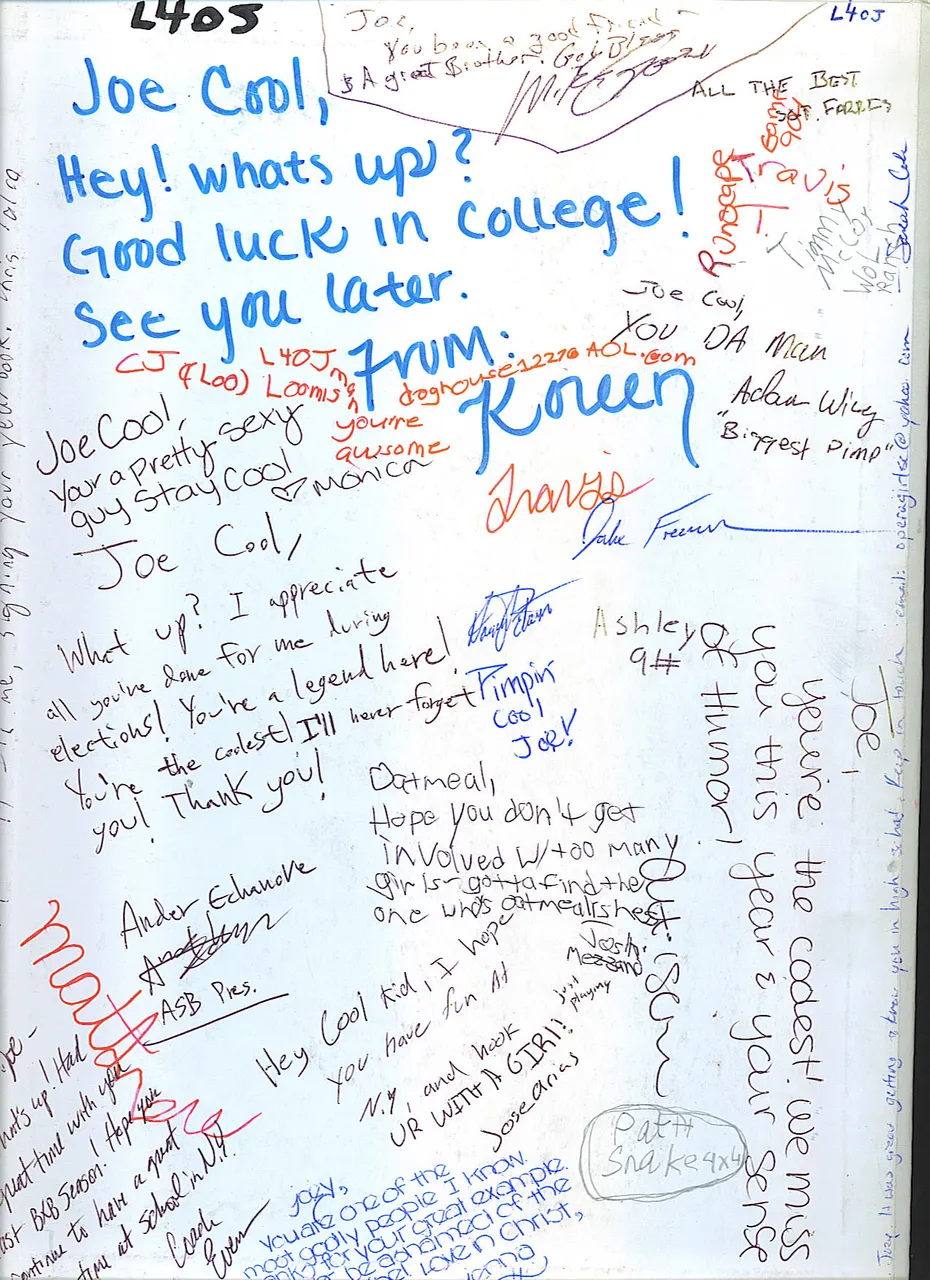 L4OJ
Joe,
You been a good friend
& A great Brother. God Bless
L4OJ
ALL THE BEST
SGT. FARRIS
Joe Cool,
Hey! whats up?
Good luck in college!
See you later.
From:
Koreen
Runescape
Travis
Joe Cool,
YOU DA Man
Adam Wiley
"Biggest Pimp"
CJ (Loo) Loomis
L4OJ man
doghouse12276 AOL.com
you're
awsome
Joe Cool,
Your a pretty sexy
guy stay cool
♡ Monica
Travis
Jake Freeman
Joe Cool,
What up? I appreciate
all you've done for me during
elections! You're a legend here!
You're the coolest! I'll never forget
you! Thank you!
Ander Echanove
ASB Pres.
Pimpin'
Cool
Joe!
Ashley
9#
Joe,
you're the coolest! we miss
you this year & your sense
of Humor!
Oatmeal,
Hope you don't get
involved w/ too many
girls- gotta find the
one who's oatmealishest.
Josh
just playing
Hey Cool kid, I hope
you have fun At
N.Y, and hook
UR WITH A GIRL!!
Jose Arias
Patt
Snake 4x4
Matthew
Joe -
What's up! I Had
great time with you
last BXB Season. I Hope you
continue to have a great
time at school in N.Y.
Coach
Joey,
You are one of the
most godly people I know.
Thanks for your great example
be ashamed of the
Love in Christ,
Joey, It was great getting to know you in high school. Keep in touch. email: operagirlsc@yahoo.com Sarah
me, signing your year book. this